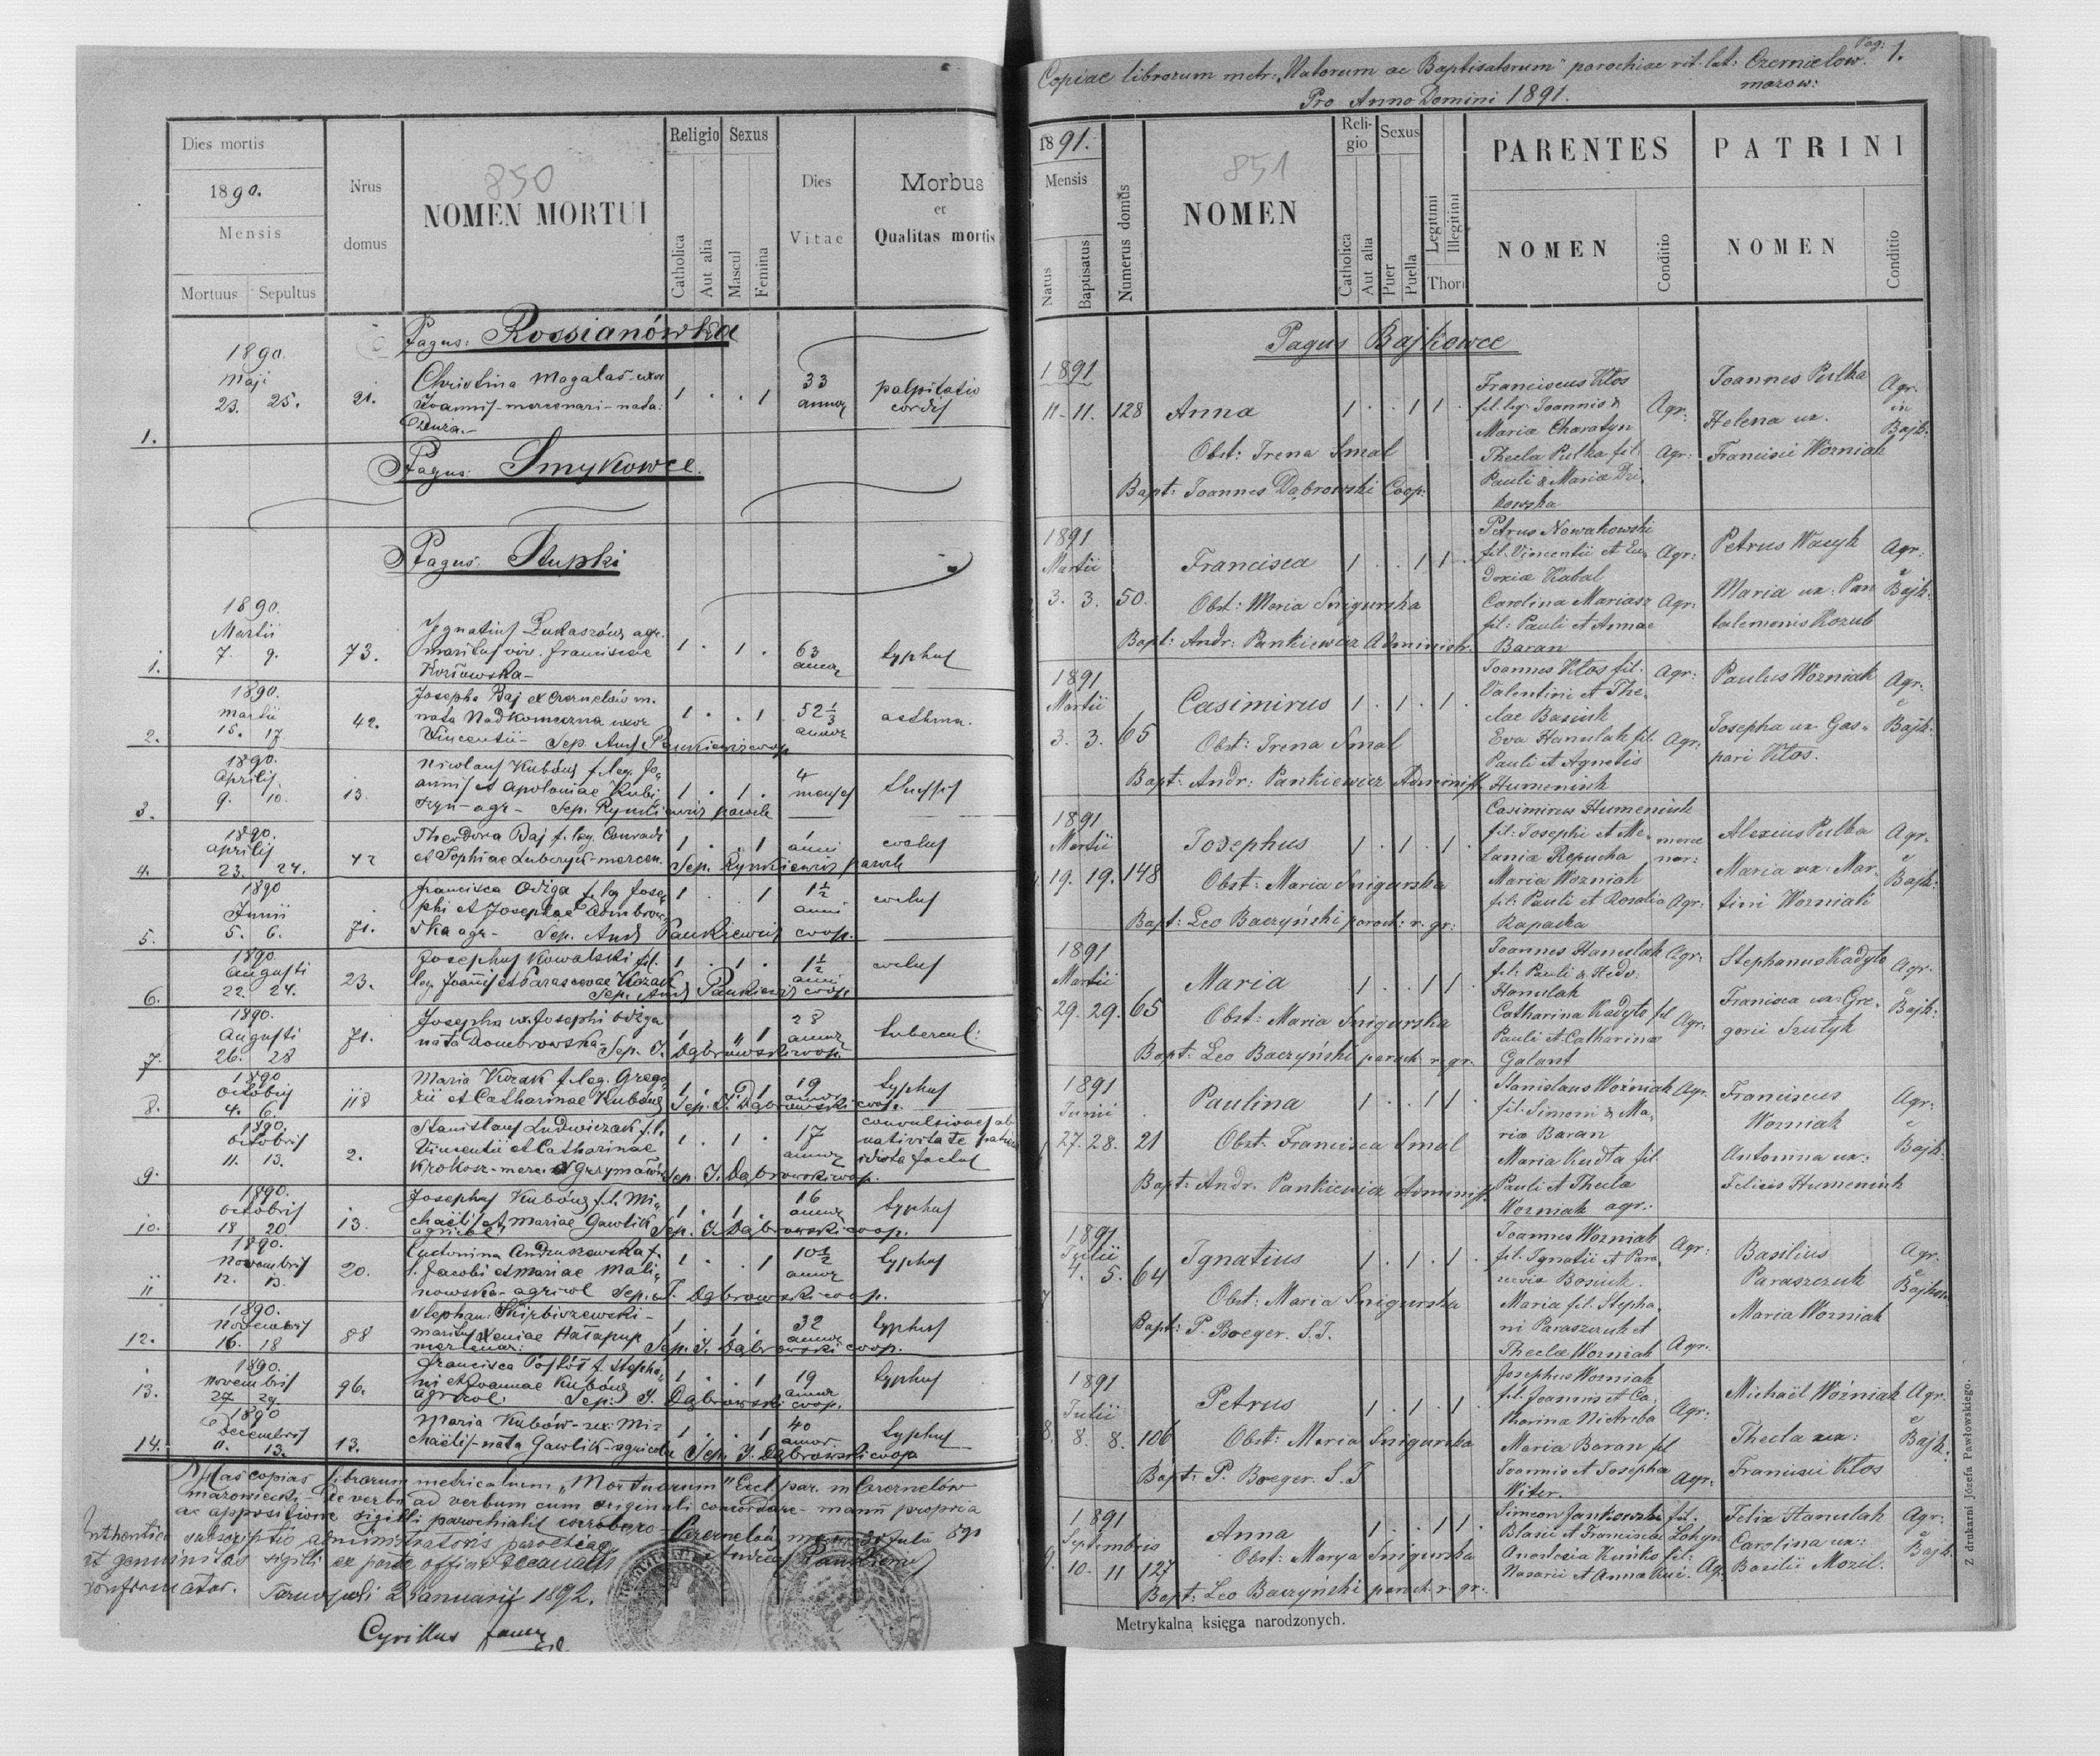 Dies mortis
1890.
Mensis
Mortuus Sepultus
Nrus
domus
850
NOMEN MORTUI
Religio
Catholica
Aut alia
Sexus
Mascul
Femina
Dies
Vitae
Morbus
et
Qualitas mortis
Pagus: Rossianówka
1.
1890.
Maji
23. 25.
21.
Christina Magalas uxor
Joannis mercenari nata
1 . . 1
33
annor
palpitatio
cordis
Pagus: Smykowce.
Pagus: Stupki
1.
1890.
Martii
7 9.
73.
Ignatius Łukaszów agr.
maritus viv. Franciscae
1 . 1 .
63
annor
typhus
2.
1890.
Martii
15. 17
42.
Josepha Baj ex Czernelów m.
nata Nadkomeczna uxor
Vincentii - Sep. And Pankiewicz coop
1 . . 1
52 1/3
annor
asthma.
3.
1890.
Aprilis
9. 10.
13.
Nicolaus Kubów f. leg. Jo,
annis et Apoloniae Kubi,
szyn agr - Sep. Rynkiewicz paroch
1 . 1 .
4
menses
tussis
4.
1890.
Aprilis
23. 24.
42
Theodora Baj f. leg. Conradi
et Sophiae Luberyck - mercen.
Sep. Rynkiewicz paroch
1 . . 1
anni
5.
1890
Junii
5. 6.
71.
Francisca Odżga f. leg Jose,
phi et Josephae Dombrow,
ska agr - Sep. And Pankiewicz coop.
1 . . 1
1 1/2
anni
6.
1890
Augusti
22. 24.
23.
Josephus Kowalski fil.
leg Joannis et Parascevae Kozak
Sep. And Pankiewicz coop.
1 . 1 .
1 1/2
anni
7.
1890.
Augusti
26. 28
71.
Josepha ux. Josephi Odżga
nata Dombrowska - Sep. J. Dąbrowski coop.
28
annor
tubercul:
8.
1890
Octobris
4. 6.
118
Maria Kozak f. leg. Grego
rii et Catharinae Kubów
Sep. J. Dąbrowski coop.
19
annor
typhus
9.
1890.
Octobris
11. 13.
2.
Stanislaus Ludwiczak f. l.
Vincentii et Catharinae
Krokosz - merc. Grzymałów
Sep. J. Dąbrowski coop.
1 . 1 .
17
annor
convulsiones ab
nativitate
idiota factus
10.
1890.
Octobris
18 20
13.
Josephus Kubów f. l. Mi,
chaëlis et Mariae Gawlik
agricol. Sep. J. Dąbrowski coop.
1 . 1 .
16
annor
typhus
11
1890.
Novembris
12. 13.
20.
Antonina Andruszewska f.
l. Jacobi et Mariae Mali,
nowska - agricol Sep. J. Dąbrowski coop.
1 . . 1
10 1/2
annor
typhus
12.
1890.
Novembris
16. 18
88
Stephan. Skirbiszewski -
maritus Xeniae Hałapup
mercenar: Sep. J. Dąbrowski coop.
1 . 1 .
32
annor
typhus
13.
1890
Novembris
27. 29.
96.
Francisca f. Stepha,
ni et Joannae Kubów
agricol. Sep: J. Dąbrowski coop.
1 . . 1
19
annor
typhus
14.
1890
Decembris
11. 13.
13.
Maria Kubów - ux: Mi,
chaëlis - nata Gawlik - agricolae Sep. J. Dąbrowski coop
1 . . 1
40
annor
typhus
Has copias librorum metricalium „Mortuorum" Eccl par. in Czernelów
mazowiecki - de verbo ad verbum cum originali concordare - manu propria
ac appositione sigilli parochialis corroboro - Czernelów
Andreas Pankiewicz
Authentica subscriptio administratoris parochiae
et genuinitas sigilli ex parte officii Decanalis
confirmatur. Tarnopoli 2 Januarii 1892.
Cyrillus
Pag: 1.
Copiae librorum metr: „Natorum ac Baptisatorum" parochiae rit. lat: Czernielow
mazow:
Pro Anno Domini 1891.
1891.
Mensis
Natus
Baptisatus
Numerus domus
851
NOMEN
Religio
Catholica
Aut alia
Sexus
Puer
Puella
Legitimi
Illegitimi
Thori
PARENTES
NOMEN
Conditio
PATRINI
NOMEN
Conditio
Pagus Bajkowce
1891
11 - 11. 128
Anna
1 . . 1 1 .
Obst: Irena Smal
Bapt: Joannes Dąbrowski Coop:
Franciscus Kłos
fil. leg. Joannis &
Maria Charatyn
Agr:
Thecla Pulka fil.
Pauli & Maria Dzi,
kowska
Agr:
Joannes Pulka
Helena ux.
Francisci Wozniak
Agr.
in
Bajk:
1891
Martii
3. 3. 50.
Francisca
1 . . 1 1 .
Obst: Maria Snigurska
Bapt: Andr: Pankiewicz Administr.
Petrus Nowakowski
fil. Vincentii et Eu,
doxiae Kabal
Agr:
Carolina Mariasz
fil: Pauli et Annae
Baran
Agr:
Petrus Wacyk
Maria ux: Pan
talemonis Kozub
Agr:
Bajk:
1891
Martii
3. 3. 65
Casimirus
1 . 1 . 1 .
Obst: Irena Smal
Bapt: Andr: Pankiewicz Administ.
Joannes Kłos fil.
Valentini et The,
clae Basiuk
Agr:
Eva Hanulak fil.
Pauli et Agnetis
Humeniuk
Agr:
Paulus Wozniak
Josepha ux. Gas,
pari Kłos.
Agr:
Bajk:
1891
Martii
19. 19. 148
Josephus
1 . 1 . 1 .
Obst: Maria Snigurska
Bapt: Leo Baczyński paroch: r. gr:
Casimirus Humeniuk
fil: Josephi et Me,
lania Repucha
merce
nar:
Maria Wozniak
fil: Pauli et Rosalia
Rapacka
Agr:
Alexius Pulka
Maria ux: Mar,
tini Wozniak
Agr:
Bajk:
1891
Martii
29. 29. 65
Maria
1 . . 1 1 .
Obst: Maria Snigurska
Bapt: Leo Baczyński paroch r. gr.
Joannes Hanulak
fil: Pauli & Hedv:
Hanulak
Agr:
Catharina Kadyło fil
Pauli et Catharinae
Galant
Agr:
Stephanus Kadyło
Francisca ux: Gre,
gorii Szutyk
Agr.
Bajk:
1891
Junii
27. 28. 21
Paulina
1 . . 1 1 .
Obst. Francisca Smal
Bapt: Andr. Pankiewicz Administ.
Stanislaus Woźniak
fil. Simoni & Ma,
ria Baran
Agr.
Maria Kudła fil
Pauli et Thecla
Wozniak agr.:
Franciscus
Wozniak
Antonina ux:
Felicis Humeniuk
Agr:
Bajk:
1891
Julii
4. 5. 64
Ignatius
1 . 1 . 1 .
Obst: Maria Snigurska
Bapt: P. Boeger. S.J.
Joannes Wozniak
fil. Ignatii et Para,
scevia Bosiuk.
Agr:
Maria fil. Stepha,
ni Paraszczuk et
Theclae Wozniak
Agr.
Basilius
Paraszczuk
Maria Wozniak
Agr.
Bajkow.
8.
1891
Julii
8. 8. 106
Petrus
1 . 1 . 1 .
Obst: Maria Snigurska
Bapt: P. Boeger. S.J
Josephus Wozniak
fil. Joannis et Ca,
tharina Nietreba
Agr:
Maria Baran fil
Joannis et Josepha
Witer.
Agr:
Michaël Woźniak
Thecla ux:
Francisci Kłos
Agr.
Bajk:
9.
1891
Septembris
10. 11 127
Anna
1 . . 1 1 .
Obst: Marya Snigurska
Bapt: Leo Baczyński paroch. r. gr:
Simeon Jankowski fil.
Blasii et Franciscae
Anastasia Kuńko fil:
Nasarii et Anna
Agr
Felix Hanulak
Carolina ux:
Basilii Mozil.
Agr:
Bajk.
Metrykalna księga narodzonych.
Z drukarni Józefa Pawłowskiego.